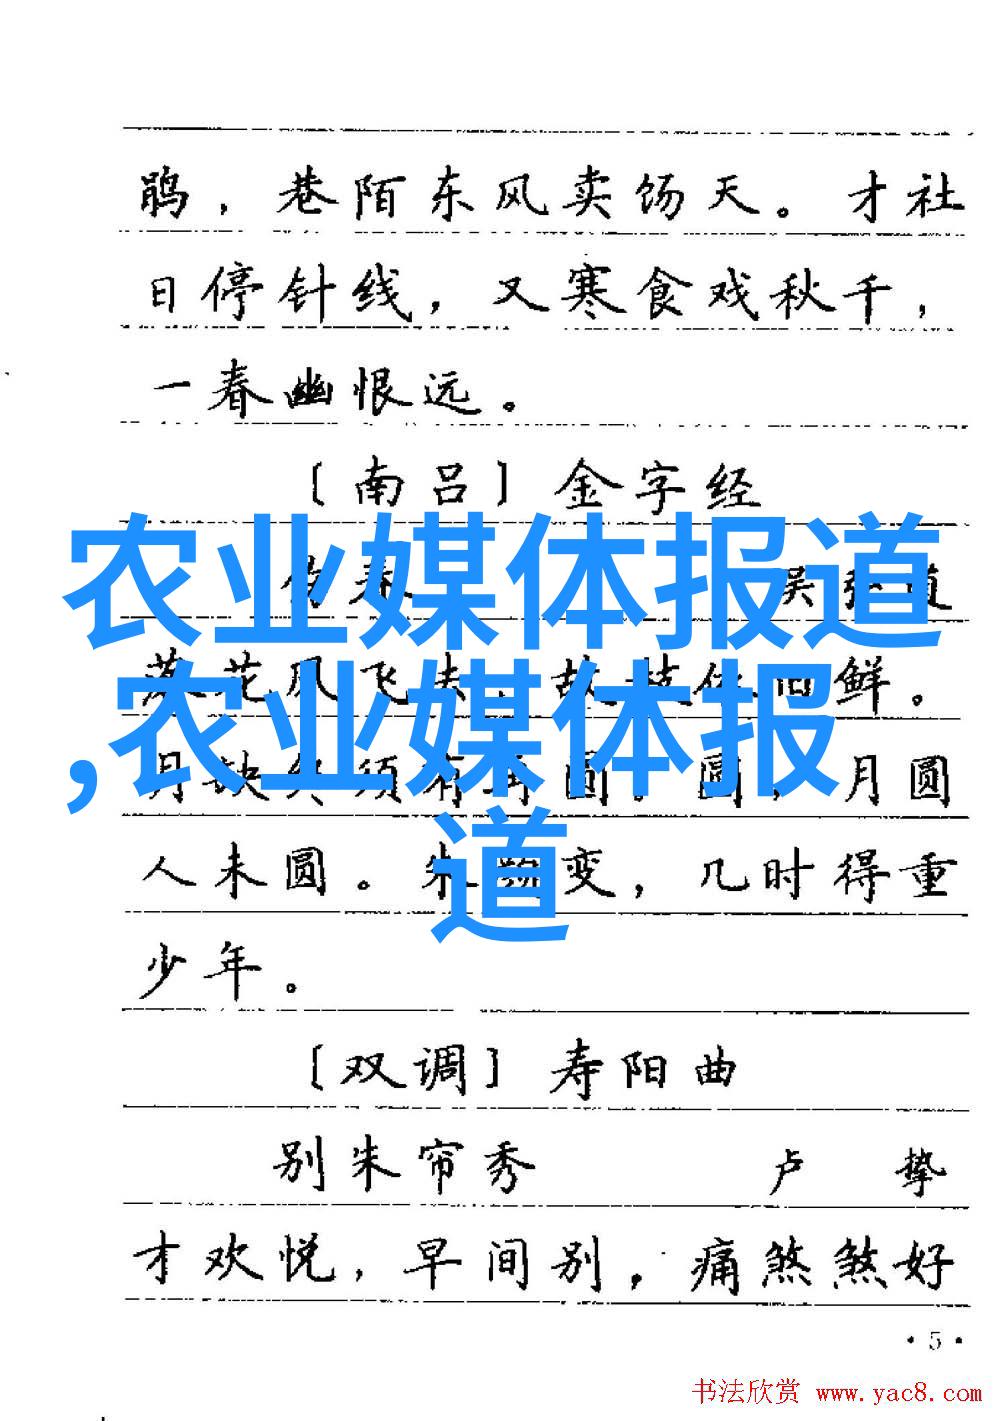 鹃，巷陌东风卖饧天。才社
日停针线，又寒食戏秋千，
一春幽恨远。
〔南吕〕金字经
伤春 吴弘道
落花风飞去，故枝依旧鲜。
月缺终须有再圆。圆，月圆
人未圆。朱颜变，几时得重
少年。
〔双调〕寿阳曲
别朱帘秀 卢挚
才欢悦，早间别，痛煞煞好
·5·
农业媒体报道
,农业媒体报
道
书法欣赏 www.yac8.com